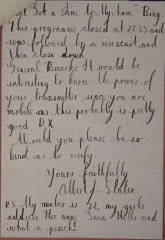 Set a Time by My Tune" Bing
This programme closed at 22:55 and
was followed by a newscast and
then close down
General Remarks It would be
interesting to know the power of
your transmitter since you are
mobile as this probably is pretty
good DX
Would you please be so
kind as to verify
Yours faithfully
Albert Slater
P.S. My mother is 22, my girls
address
what a peach!